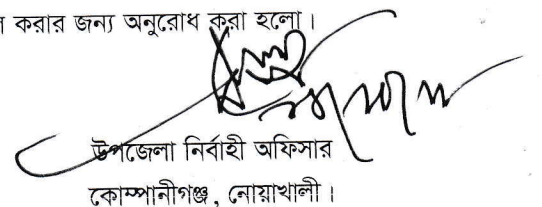 করার জন্য অনুরোধ করা হলো।
উপজেলা নির্বাহী অফিসার
কোম্পানীগঞ্জ, নোয়াখালী।